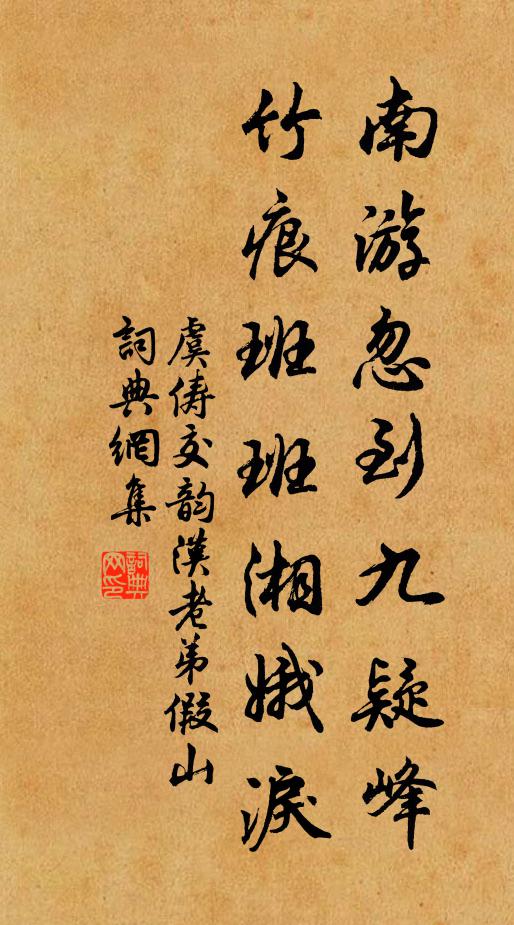 南游忽到九疑峰
竹痕班班湘娥淚
虞儔交韵漢老弟假山
詞典網集
詞典网印